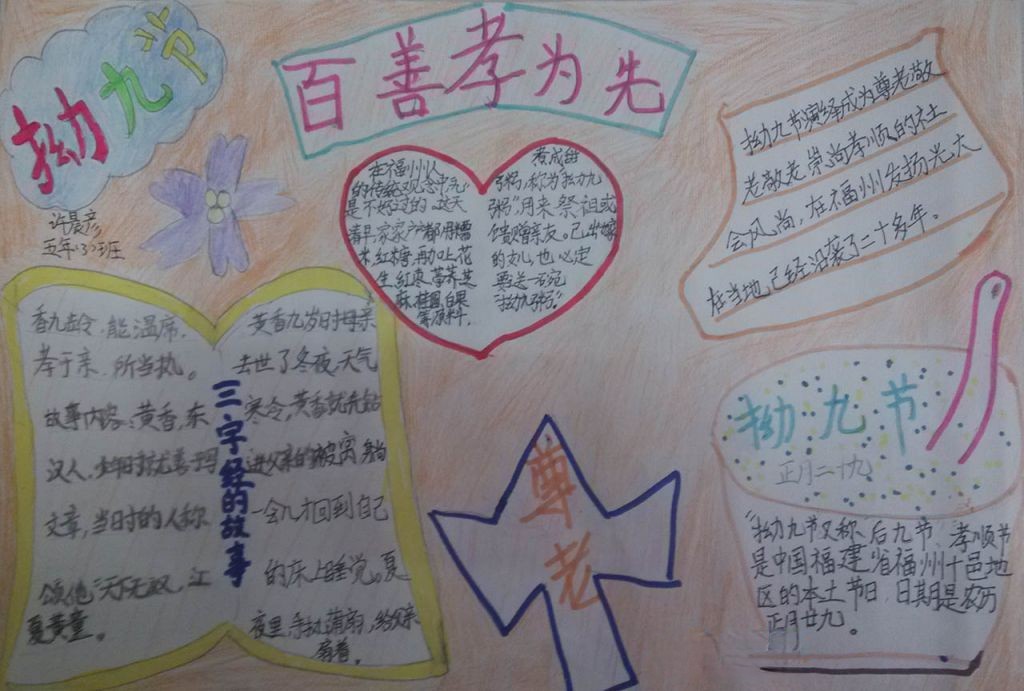 拗九节
许晨彦
五年(3)班
百善孝为先
在福州人
的传统观念中"九"
是不好过的。这天
清早家家户户都用糯
米、红糖,再加上花
生、红枣、荸荠、芝
麻、桂圆、白果
等原料,
煮成甜
粥,称为"拗九
粥"用来祭祖或
馈赠亲友。已出嫁
的女儿,也必定
要送一碗
"拗九粥"。
拗九节演绎成为尊老敬
老敬老崇尚孝顺的社
会风尚,在福州发扬光大
在当地已经沿袭了二十多年。
三字经的故事
香九龄,能温席,
孝于亲,所当执。
故事内容:黄香,东
汉人,
文章,当时的人称
颂他"天下无双,江
夏黄童。
黄香九岁时母亲
去世了冬夜,天气
寒冷,黄香就先钻
进父亲的被窝,躺
一会儿才回到自己
的床上睡觉。夏
夜里,手
尊老
拗九节
正月二十九
"拗九节又称后九节、孝顺节
是中国福建省福州十邑地
区的本土节日,日期是农历
正月廿九。